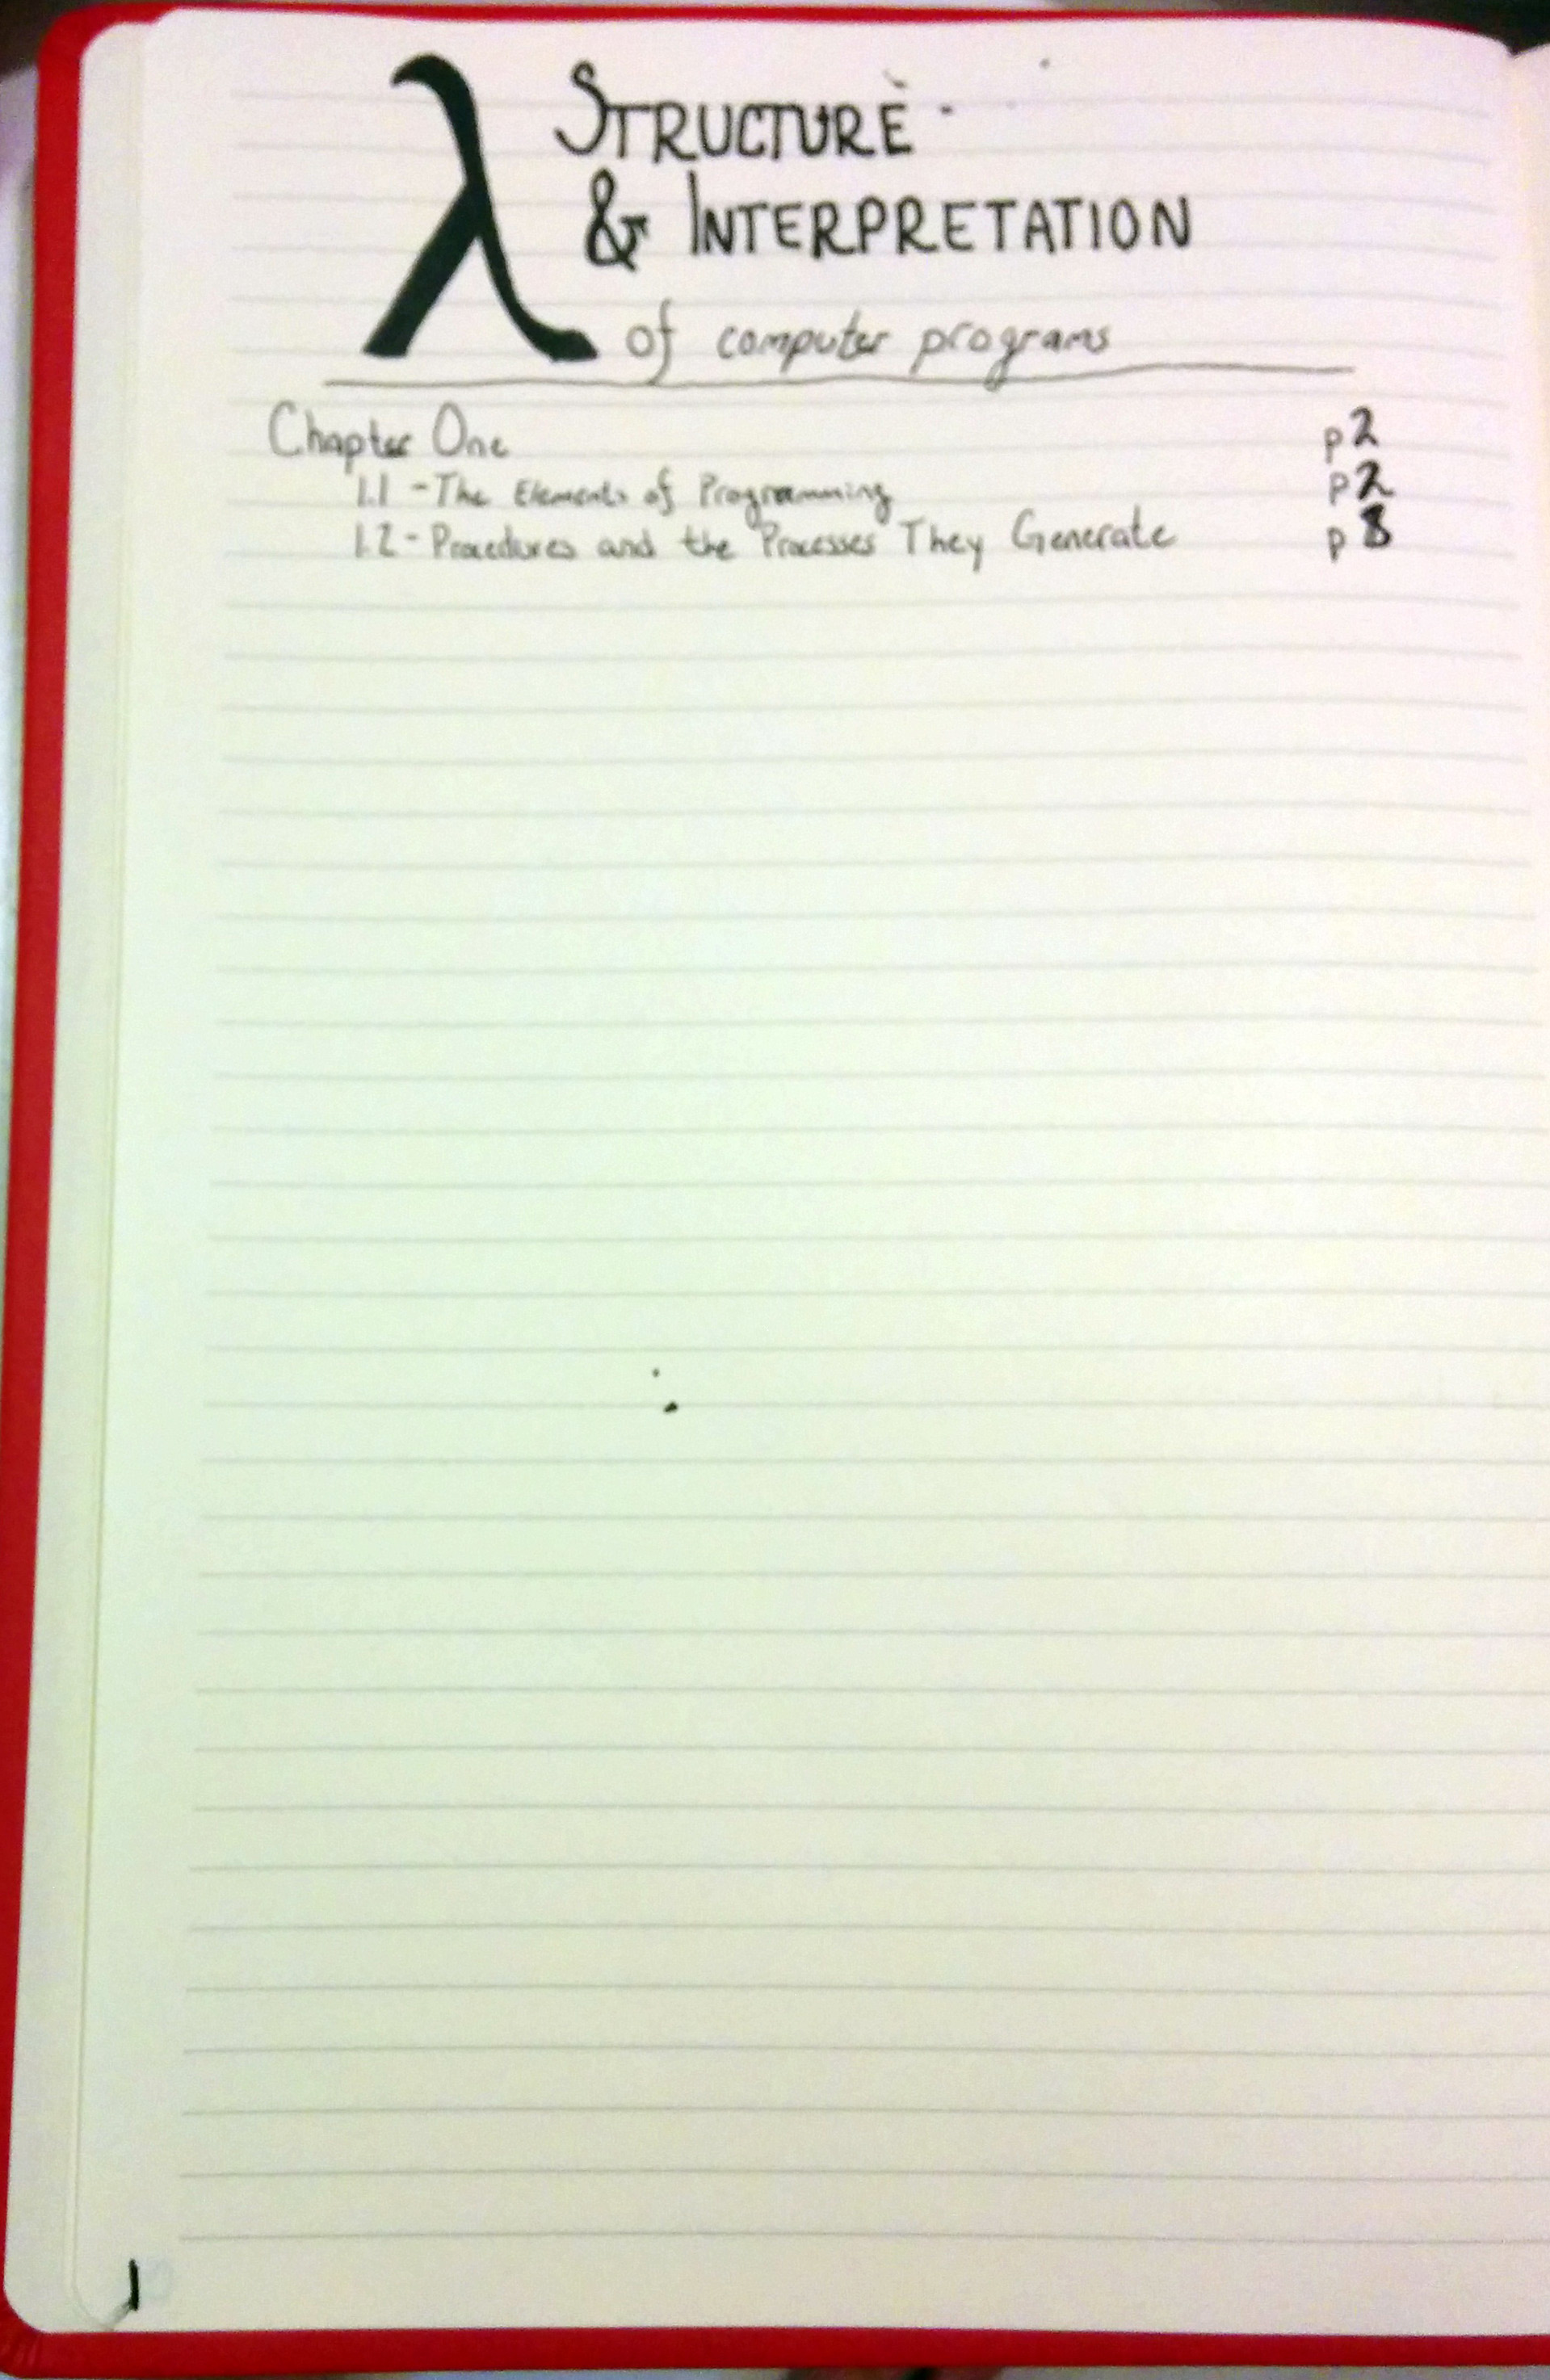 λ STRUCTURE
& INTERPRETATION
of computer programs
Chapter One p2
1.1 - The Elements of Programming p2
1.2 - Procedures and the Processes They Generate p8
1